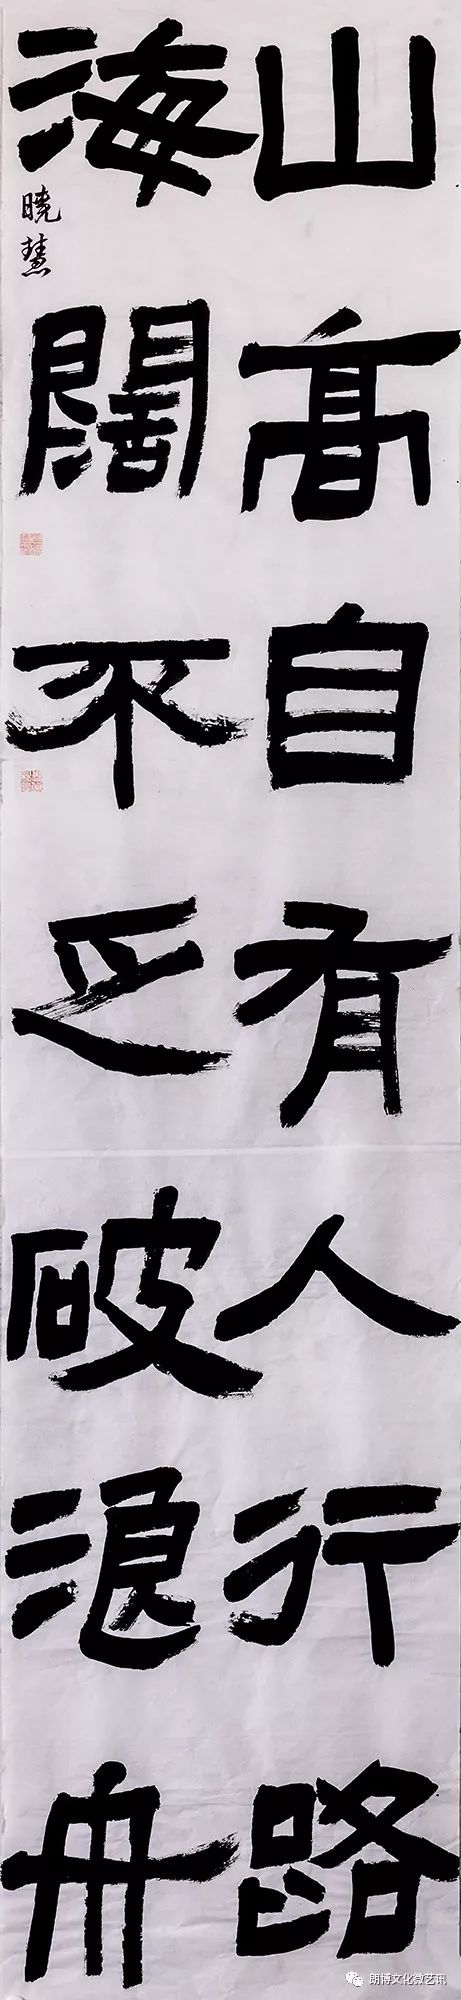 山高自有人行路
海阔不乏破浪舟
晓慧
朗博文化微艺讯